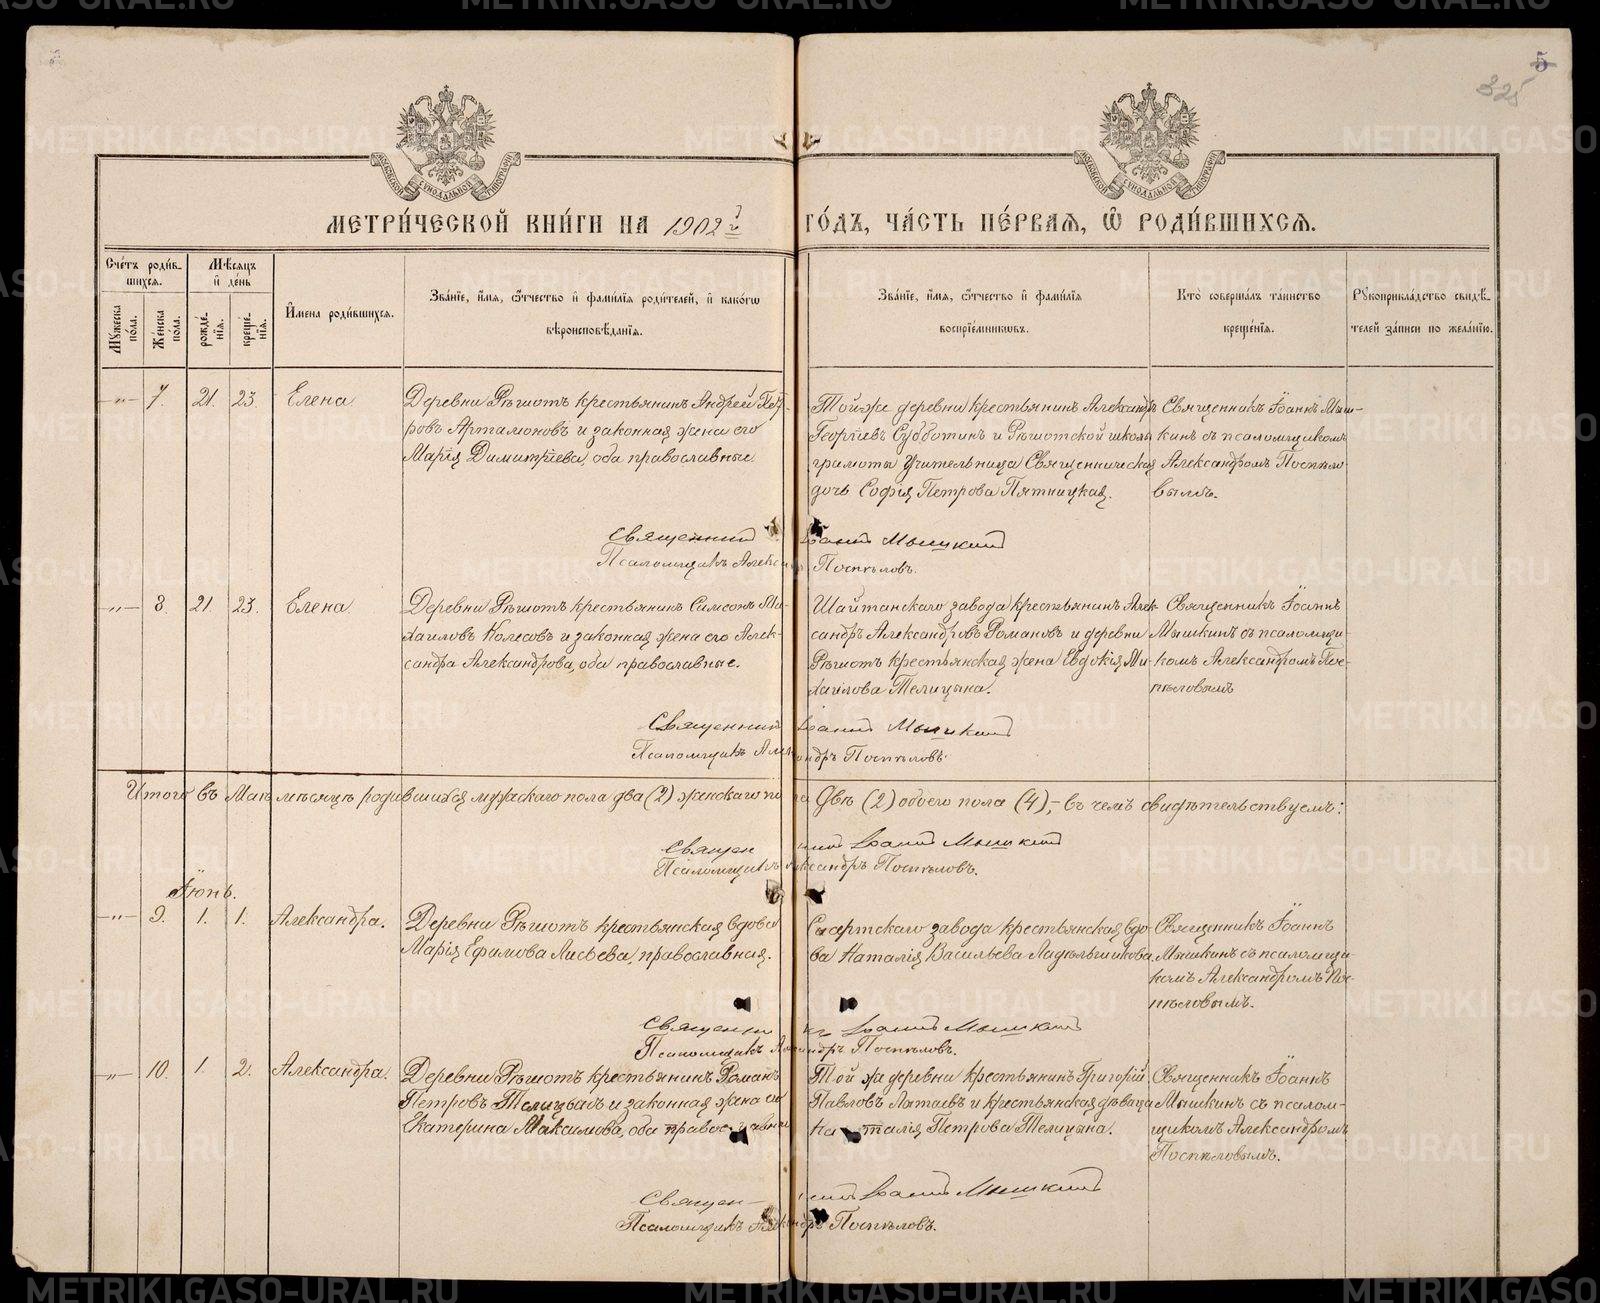 5
325
МОСКОВСКОЙ СѴНОДАЛЬНОЙ ТИПОГРАФІИ
МОСКОВСКОЙ СѴНОДАЛЬНОЙ ТИПОГРАФІИ
МЕТРИ́ЧЕСКОЙ КНИ́ГИ НА 1902 г. ГО́ДЪ, ЧА́СТЬ ПЕ́РВАЯ, Ѡ РОДИ́ВШИХСЯ.
Счётъ роди́вшихся.
Мꙋжеска по́ла.
Же́нска по́ла.
Мѣ́сяцъ и де́нь
рожде́нїя.
креще́нїя.
Имена роди́вшихся.
Зва́нїе, и́мя, о́тчество и фами́лїя роди́телей, и како́гѡ вѣроисповѣ́данїя.
Зва́нїе, и́мя, о́тчество и фами́лїя воспрїе́мникѡвъ.
Кто̀ соверша́лъ та́инство креще́нїя.
Рꙋкоприкла́дство свидѣ́телей за́писи по жела́нїю.
-"- 7. 21. 23. Елена
Деревни Рѣшотъ крестьянинъ Андрей Пет-
ровъ Артамоновъ и законная жена его
Марія Димитріева, оба православные
Той-же деревни крестьянинъ Александръ
Георгіевъ Субботинъ и Рѣшотской школы
грамоты учительница Священническая
дочь Софія Петрова Пятницкая.
Священникъ Іоаннъ Мыш-
кинъ съ псаломщикомъ
Александромъ Поспѣло-
вымъ.
Священникъ Іоаннъ Мышкинъ
Псаломщикъ Александръ Поспѣловъ.
-"- 8. 21. 23. Елена
Деревни Рѣшотъ крестьянинъ Симеонъ Ми-
хаиловъ Колесовъ и законная жена его Алек-
сандра Александрова, оба православные.
Шайтанскаго завода крестьянинъ Алек-
сандръ Александровъ Романовъ и деревни
Рѣшотъ крестьянская жена Евдокія Ми-
хаилова Телицына.
Священникъ Іоаннъ
Мышкинъ съ псаломщи-
комъ Александромъ Пос-
пѣловымъ
Священникъ Іоаннъ Мышкинъ
Псаломщикъ Александръ Поспѣловъ.
Итого въ Маѣ мѣсяцѣ родившихся мужскаго пола два (2) женскаго пола двѣ (2) обоего пола (4),- въ чемъ свидѣтельствуемъ:
Священникъ Іоаннъ Мышкинъ
Псаломщикъ Александръ Поспѣловъ.
Іюнь.
-"- 9. 1. 1. Александра.
Деревни Рѣшотъ крестьянская вдова
Марія Ефимова Лисьева, православная.
Сысертскаго завода крестьянская вдо-
ва Наталія Васильева Ладѣльщикова.
Священникъ Іоаннъ
Мышкинъ съ псаломщи-
комъ Александромъ Пос-
пѣловымъ.
Священникъ Іоаннъ Мышкинъ
Псаломщикъ Александръ Поспѣловъ.
-"- 10. 1. 2. Александра.
Деревни Рѣшотъ крестьянинъ Романъ
Петровъ Телицынъ и законная жена его
Екатерина Максимова, оба православные
Той же деревни крестьянинъ Григорій
Павловъ Латаевъ и крестьянская дѣвица
Наталія Петрова Телицына.
Священникъ Іоаннъ
Мышкинъ съ псалом-
щикомъ Александромъ
Поспѣловымъ.
Священникъ Іоаннъ Мышкинъ
Псаломщикъ Александръ Поспѣловъ.
METRIKI.GASO-URAL.RU